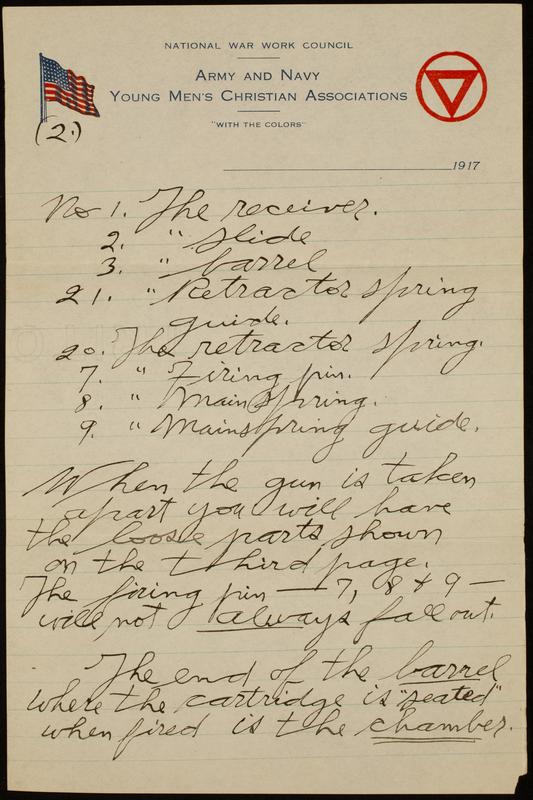 NATIONAL WAR WORK COUNCIL
ARMY AND NAVY
YOUNG MEN'S CHRISTIAN ASSOCIATIONS
"WITH THE COLORS"
(2.)
1917
No 1. The receiver.
2. " slide
3. " barrel
21. " Retractor spring
guide.
20. The retractor spring.
7. " Firing pin.
8. " Mainspring.
9. " Mainspring guide.
When the gun is taken
apart you will have
the loose parts shown
on the third page.
The firing pin — 7, 8 & 9 —
will not always fall out.
The end of the barrel
where the cartridge is "seated"
when fired is the chamber.